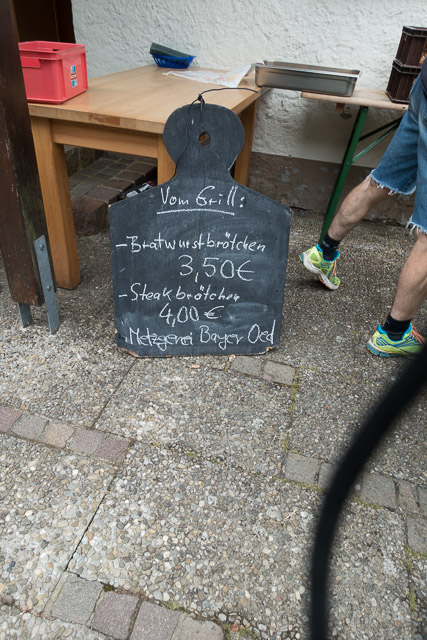 Vom Grill:
- Bratwurstbrötchen
3,50€
- Steakbrötchen
4,00 €
Metzgerei Bayer Oed